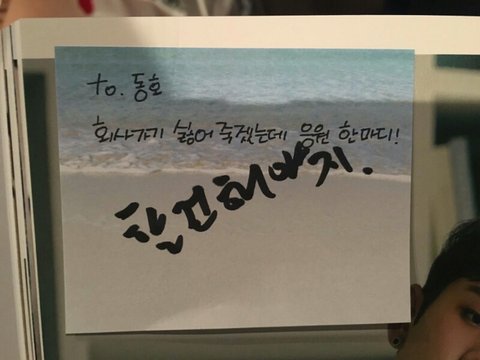 to. 동호
회사가기 싫어 죽겠는데 응원 한마디!
할 건 해야지.